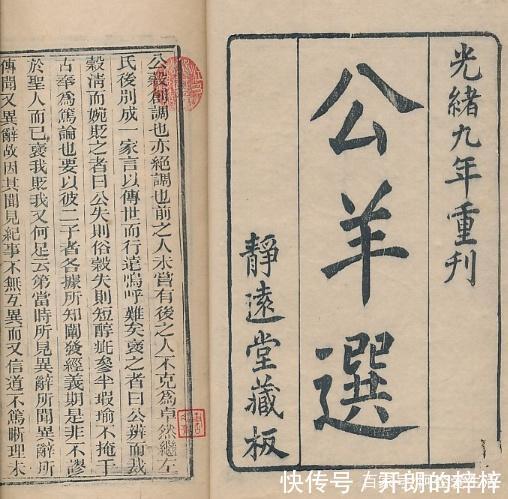 光緒九年重刊
公羊選
靜遠堂藏板
公穀創調也亦絕調也前之人未嘗有後之人不克為卓然繼左
氏後別成一家言以傳世而行遠嗚呼難矣褒之者曰公辨而裁
穀清而婉貶之者曰公失則俗穀失則短醇疵參半瑕瑜不掩王
古奉為篤論也要以彼二子者各據所知闡發經義期是非不謬
於聖人而已褒我貶我又何足云第當時所見異辭所聞異辭所
傳聞又異辭故因其聞見紀事不無互異而又信道不篤晰理未
快传号/开朗的梓梓